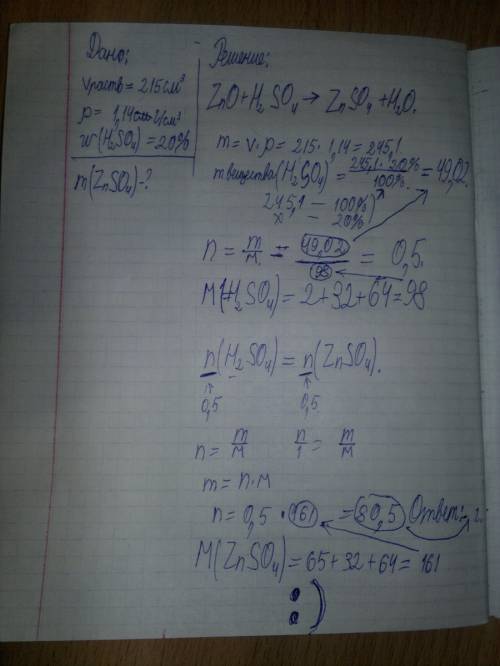 Дано:
Vраств = 215 см³
ρ = 1,14 г/см³
w(H₂SO₄) = 20%
m(ZnSO₄) - ?
Решение:
ZnO + H₂SO₄ → ZnSO₄ + H₂O.
m = v · ρ = 215 · 1,14 = 245,1.
m вещества (H₂SO₄) = 245,1 · 20% / 100% = 49,02.
245,1 — 100%
x — 20%
n = m/м = 49,02 / 98 = 0,5.
M(H₂SO₄) = 2+32+64 = 98
n(H₂SO₄) = n(ZnSO₄).
0,5 0,5
n = m/м n/1 = m/м
m = n · м
n = 0,5 · 161 = 80,5 Ответ:
M(ZnSO₄) = 65+32+64 = 161
:)